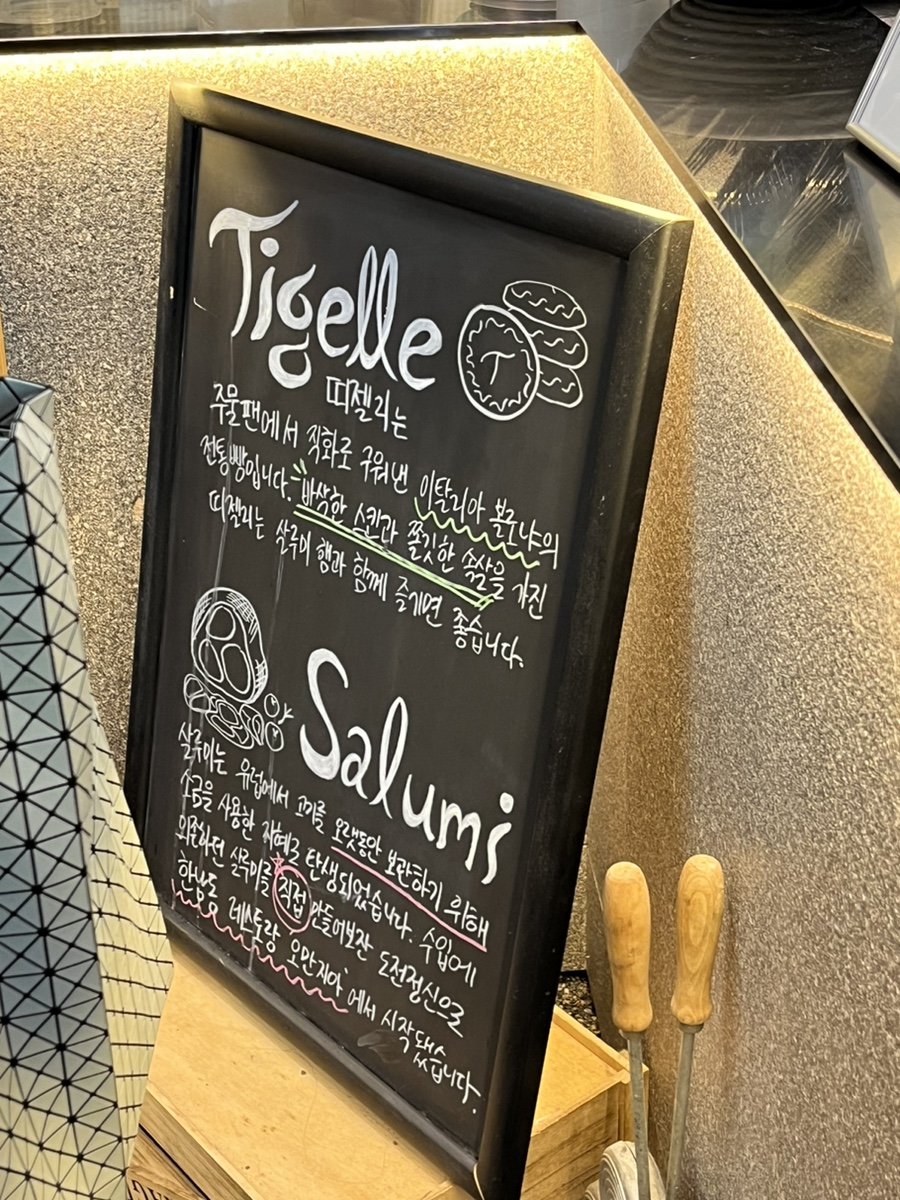 Tigelle
T
띠젤라는
주물팬에서 직화로 구워낸 이탈리아 볼로냐의
전통빵입니다. 바삭한 스킨과 쫄깃한 속살을 가진
띠젤리는 살루미 햄과 함께 즐기면 좋습니다.
Salumi
살루미는 유럽에서 고기를 오랫동안 보관하기 위해
소금을 사용한 지혜로 탄생되었습니다. 수입에
의존하던 살루미를 직접 만들어보잔 도전정신으로
한남동 레스토랑 오만지아 에서 시작됐습니다.